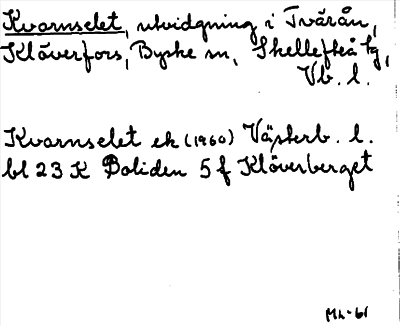 Kvarnselet, utvidgning i Tvärån,
Klöverfors, Byske sn, Skellefteå tg,
Vb. l.
Kvarnselet ek (1960) Västerb. l.
bl 23 K Boliden 5 f Klöverberget
ML-61